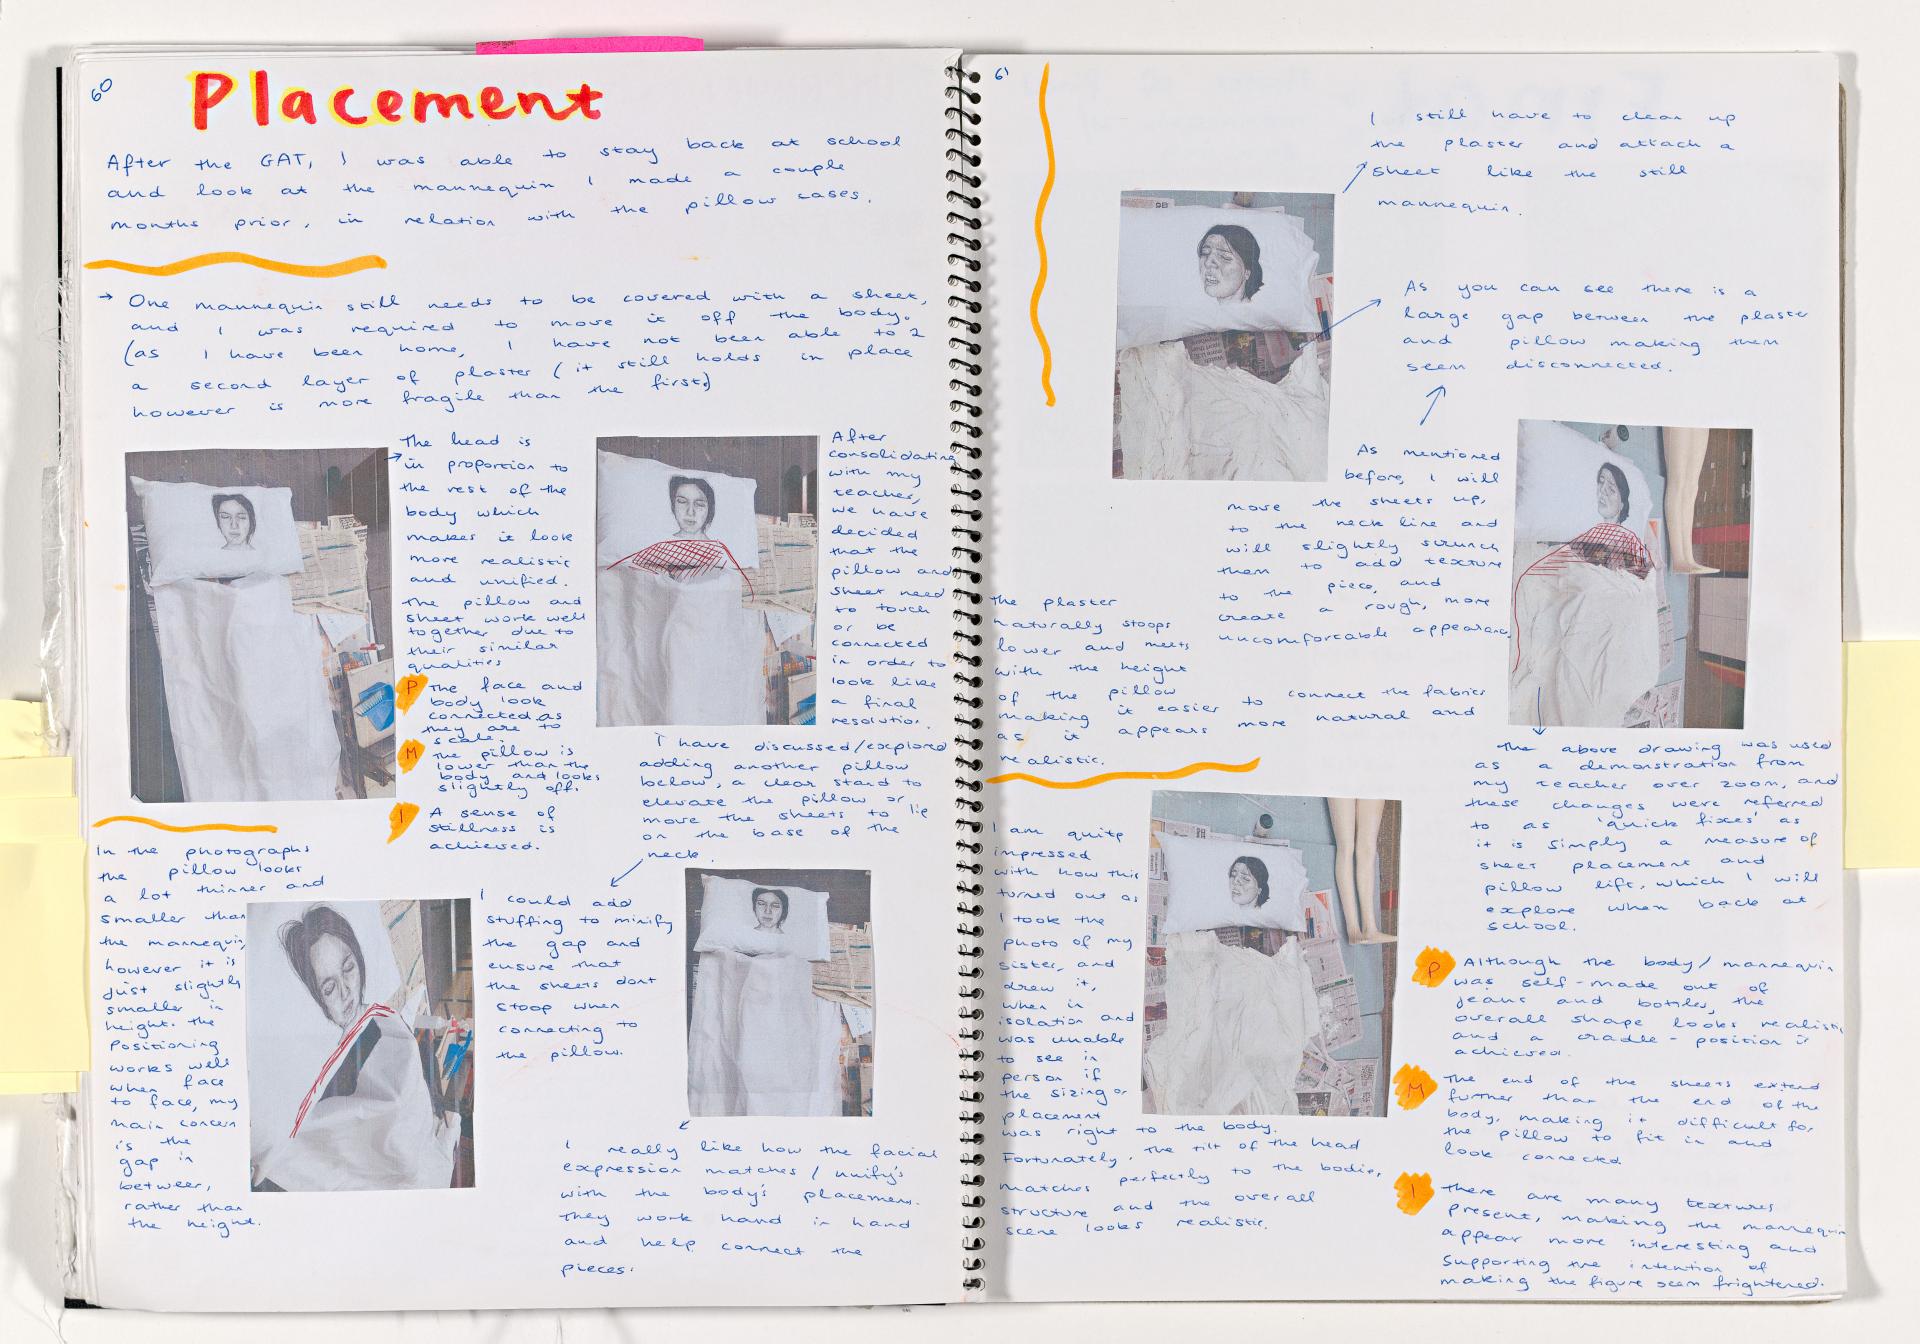 60
Placement
After the GAT, I was able to stay back at school
and look at the mannequin I made a couple
months prior, in relation with the pillow cases.
→ One mannequin still needs to be covered with a sheet,
and I was required to move it off the body.
(as I have been home, I have not been able to)
a second layer of plaster (it still holds in place
however is more fragile than the first)
The head is
in proportion to
the rest of the
body which
makes it look
more realistic
and unified.
The pillow and
sheet work well
together due to
their similar
qualities
P The face and
body look
connected as
they are to
scale.
M The pillow is
lower than the
body and looks
slightly off.
I A sense of
stillness is
achieved.
After
consolidating
with my
teacher,
we have
decided
that the
pillow and
sheet need
to touch
or be
connected
in order to
look like
a final
resolution.
I have discussed/explored
adding another pillow
below, a clear stand to
elevate the pillow or
move the sheets to lie
on the base of the
neck.
In the photographs
the pillow looks
a lot thinner and
smaller than
the mannequin,
however it is
just slightly
smaller in
height. The
positioning
works well
when face
to face, my
main concern
is the
gap in
between,
rather than
the height.
I could add
stuffing to minify
the gap and
ensure that
the sheets dont
stoop when
connecting to
the pillow.
I really like how the facial
expression matches / unify's
with the body's placement.
They work hand in hand
and help connect the
pieces.
61
I still have to clean up
the plaster and attach a
sheet like the still
mannequin.
As you can see there is a
large gap between the plaster
and pillow making them
seem disconnected.
As mentioned
before, I will
move the sheets up,
to the neck line and
will slightly scrunch
them to add texture
to the piece, and
create a rough, more
uncomfortable appearance
The plaster
naturally stoops
lower and meets
with the height
of the pillow
making it easier to connect the fabrics
as it appears more natural and
realistic.
The above drawing was used
as a demonstration from
my teacher over zoom, and
these changes were referred
to as 'quick fixes' as
it is simply a measure of
sheet placement and
pillow lift, which I will
explore when back at
school.
I am quite
impressed
with how this
turned out as
I took the
photo of my
sister, and
drew it,
when in
isolation and
was unable
to see in
person if
the sizing or
placement
was right to the body.
Fortunately, the tilt of the head
matches perfectly to the bodies,
structure and the overall
scene looks realistic.
P Although the body/mannequin
was self-made out of
jeans and bottles, the
overall shape looks realistic
and a cradle-position is
achieved.
M The end of the sheets extend
further than the end of the
body, making it difficult for
the pillow to fit in and
look connected.
I There are many textures
present, making the mannequin
appear more interesting and
supporting the intention of
making the figure seem frightened.